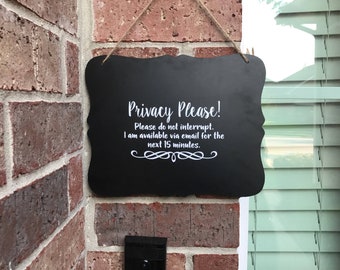 Privacy Please!
Please do not interrupt.
I am available via email for the
next 15 minutes.